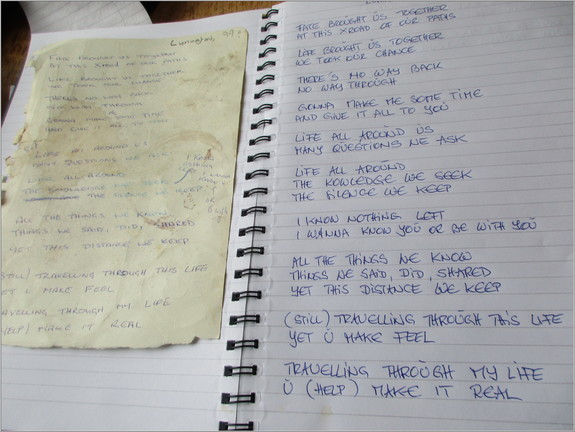 Lymington, 97?
FATE BROUGHT US TOGETHER
AT THIS XROAD OF OUR PATHS
LIFE BROUGHT US TOGETHER
THERE'S NO WAY BACK
NO WAY THROUGH
GONNA MAKE ME SOME TIME
AND GIVE IT ALL TO YOU
LIFE ALL AROUND US
MANY QUESTIONS WE ASK
LIFE ALL AROUND
THE KNOWLEDGE WE SEEK
THE SILENCE WE KEEP
I KNOW
NOTHING
ALL THE THINGS WE KNOW
THINGS WE SAID, DID, SHARED
YET THIS DISTANCE WE KEEP
STILL) TRAVELLING THROUGH THIS LIFE
ET U MAKE FEEL
RAVELLING THROUGH MY LIFE
HELP) MAKE IT REAL
FATE BROÜGHT ÜS TOGETHER
AT THIS XROAD OF OÜR PATHS
LIFE BROÜGHT ÜS TOGETHER
WE TOOK OÜR CHANCE
THERE'S NO WAY BACK
NO WAY THROÜGH
GONNA MAKE ME SOME TIME
AND GIVE IT ALL TO YOÜ
LIFE ALL AROÜND ÜS
MANY QÜESTIONS WE ASK
LIFE ALL AROÜND
THE KOWLEDGE WE SEEK
THE SILENCE WE KEEP
I KNOW NOTHING LEFT
I WANNA KNOW YOÜ OR BE WITH YOÜ
ALL THE THINGS WE KNOW
THINGS WE SAID, DID, SHARED
YET THIS DISTANCE WE KEEP
(STILL) TRAVELLING THROÜGH THIS LIFE
YET Ü MAKE FEEL
TRAVELLING THROÜGH MY LIFE
Ü (HELP) MAKE IT REAL